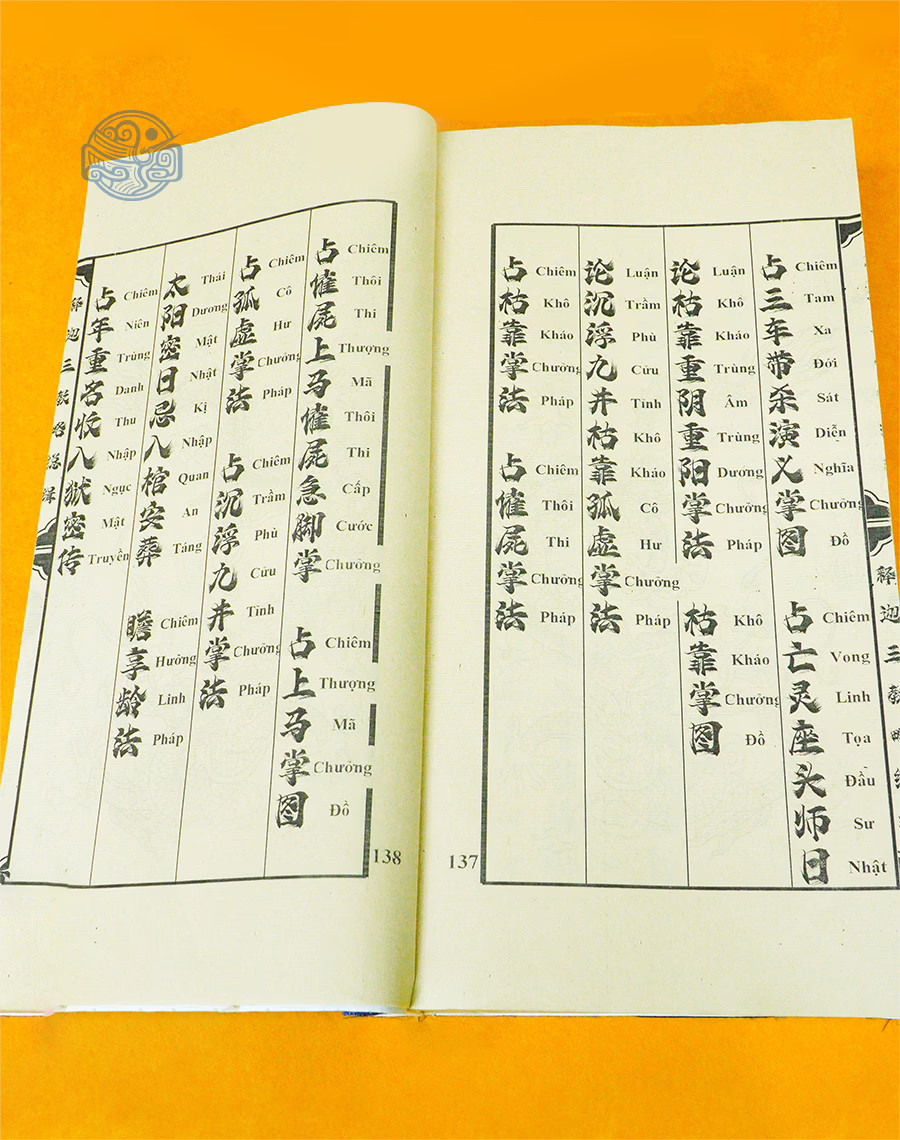 占三车带杀演义掌图
Chiêm Tam Xa Đới Sát Diễn Nghĩa Chưởng Đồ
占亡灵座头师日
Chiêm Vong Linh Tọa Đầu Sư Nhật
论枯靠重阴重阳掌法
Luận Khô Kháo Trùng Âm Trùng Dương Chưởng Pháp
枯靠掌图
Khô Kháo Chưởng Đồ
论沉浮九井枯靠孤虚掌法
Luận Trầm Phù Cửu Tỉnh Khô Kháo Cô Hư Chưởng Pháp
占枯靠掌法
Chiêm Khô Kháo Chưởng Pháp
占催屍掌法
Chiêm Thôi Thi Chưởng Pháp
释迦三
137
占催屍上马催屍急脚掌
Chiêm Thôi Thi Thượng Mã Thôi Thi Cấp Cước Chưởng
占上马掌图
Chiêm Thượng Mã Chưởng Đồ
占孤虚掌法
Chiêm Cô Hư Chưởng Pháp
占沉浮九井掌法
Chiêm Trầm Phù Cửu Tỉnh Chưởng Pháp
太阳密日忌入棺安葬
Thái Dương Mật Nhật Kị Nhập Quan An Táng
瞻享龄法
Chiêm Hưởng Linh Pháp
占年重名收入狱密传
Chiêm Niên Trùng Danh Thu Nhập Ngục Mật Truyền
释迦三
138